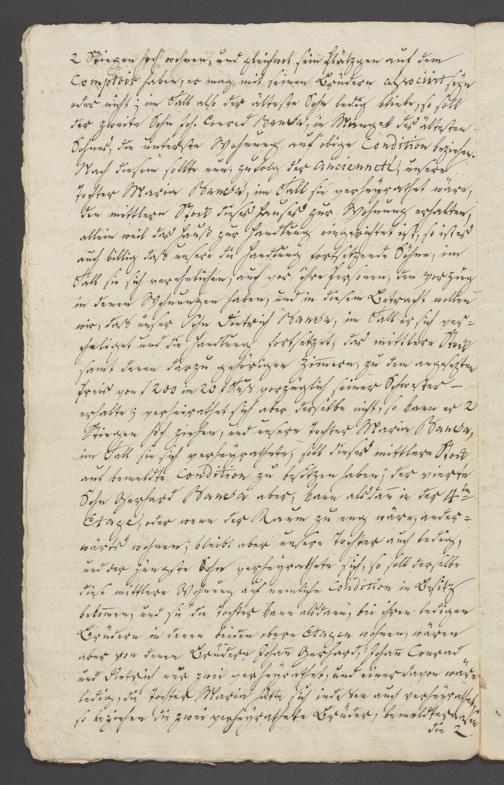 2 Stiegen hoch wohnen, und gleichwol sein Plätzgen auf dem
Comptoir haben, er mag mit seinen Brüdern associirt seyn
oder nicht; im Fall also der älteste Sohn ledig bliebe, so soll
der zweite Sohn Joh. Conrad Bansa, in Mangel des ältesten
Sohnes, die unterste Wohnung auf obige Condition beziehen.
Nach diesem sollte nun, zufolg der Ancienneté, unsere
Tochter Maria Bansa, im Fall sie verheyrathet wäre,
den mittlern Stock dieses Hauses zur Wohnung erhalten,
allein weil das Hauß zur Handlung eingerichtet ist, so ist es
auch billig daß unsere die Handlung fortsetzende Söhne, im
Fall sie sich verehelichen, auch vor ihre Personen, den Vorzug
in denen Wohnungen haben, und in diesem Betracht wollen
wir, daß unser Sohn Dietrich Bansa, im Fall er sich ver=
eheliget und die Handlung fortsetzet, das mittlere Stock
samt denen darzu gehörigen Zimmern, zu dem angesetzten
Preis von f 200 im 20 f Fuß vorzüglich seiner Schwester
erhalte; verheirathet sich aber derselbe nicht, so kann er 2
Stiegen hoch ziehen, und unsere Tochter Maria Bansa,
im Fall sie sich verheyrathete, soll dieses mittlere Stock
auf bemeldte Condition zu besitzen haben; der vierte
Sohn Gerhard Bansa aber, kann alsdann in der 4ten
Etage, oder wenn der Raum zu eng wäre, ander=
wärts wohnen; bleibt aber unsere Tochter auch ledig,
und der jüngste Sohn verheyrathete sich, so soll derselbe
diese mittlere Wohnung auf nemliche Condition in Besitz
bekommen, und sie die Tochter kann alsdann, bei ihren ledigen
Brüdern in denen beiden obern Etagen wohnen, wären
aber von denen Brüdern Johann Gerhard, Johann Conrad
und Dietrich nur zwei verheyrathet, und einer davon wäre
ledig, die Tochter Maria hätte sich indessen auch verheyrathet,
so beziehen die zwei verheyrathete Brüder, bemeldter
die 2